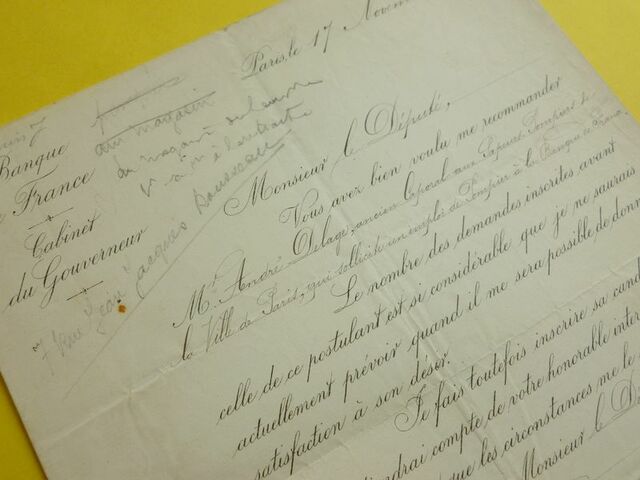 Paris, le 17 Novem
Banque
de France
Cabinet
du Gouverneur
au magasin
du
Jean Jacques Rousseau
Monsieur le Député,
Vous avez bien voulu me recommander
Mr. André Delage, ancien Caporal aux Sapeurs Pompiers de
la Ville de Paris, qui sollicite un emploi de Pompier à la Banque de France.
Le nombre des demandes inscrites avant
celle de ce postulant est si considérable que je ne saurais
actuellement prévoir quand il me sera possible de donn
satisfaction à son désir.
Je fais toutefois inscrire sa cand
iendrai compte de votre honorable inter
que les circonstances me le
Monsieur le D